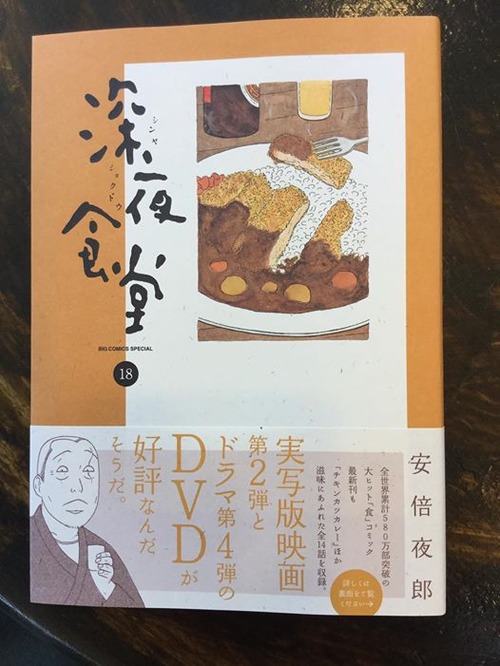 深夜食堂
シンヤ
ショクドウ
BIG COMICS SPECIAL
18
安倍夜郎
全世界累計580万部突破の
大ヒット「食」コミック
最新刊も
「チキンカツカレー」ほか
滋味にあふれた全14話を収録。
実写版映画
第2弾と
ドラマ第4弾の
DVDが
好評なんだ
そうだ。
詳しくは
裏面をご覧
ください→